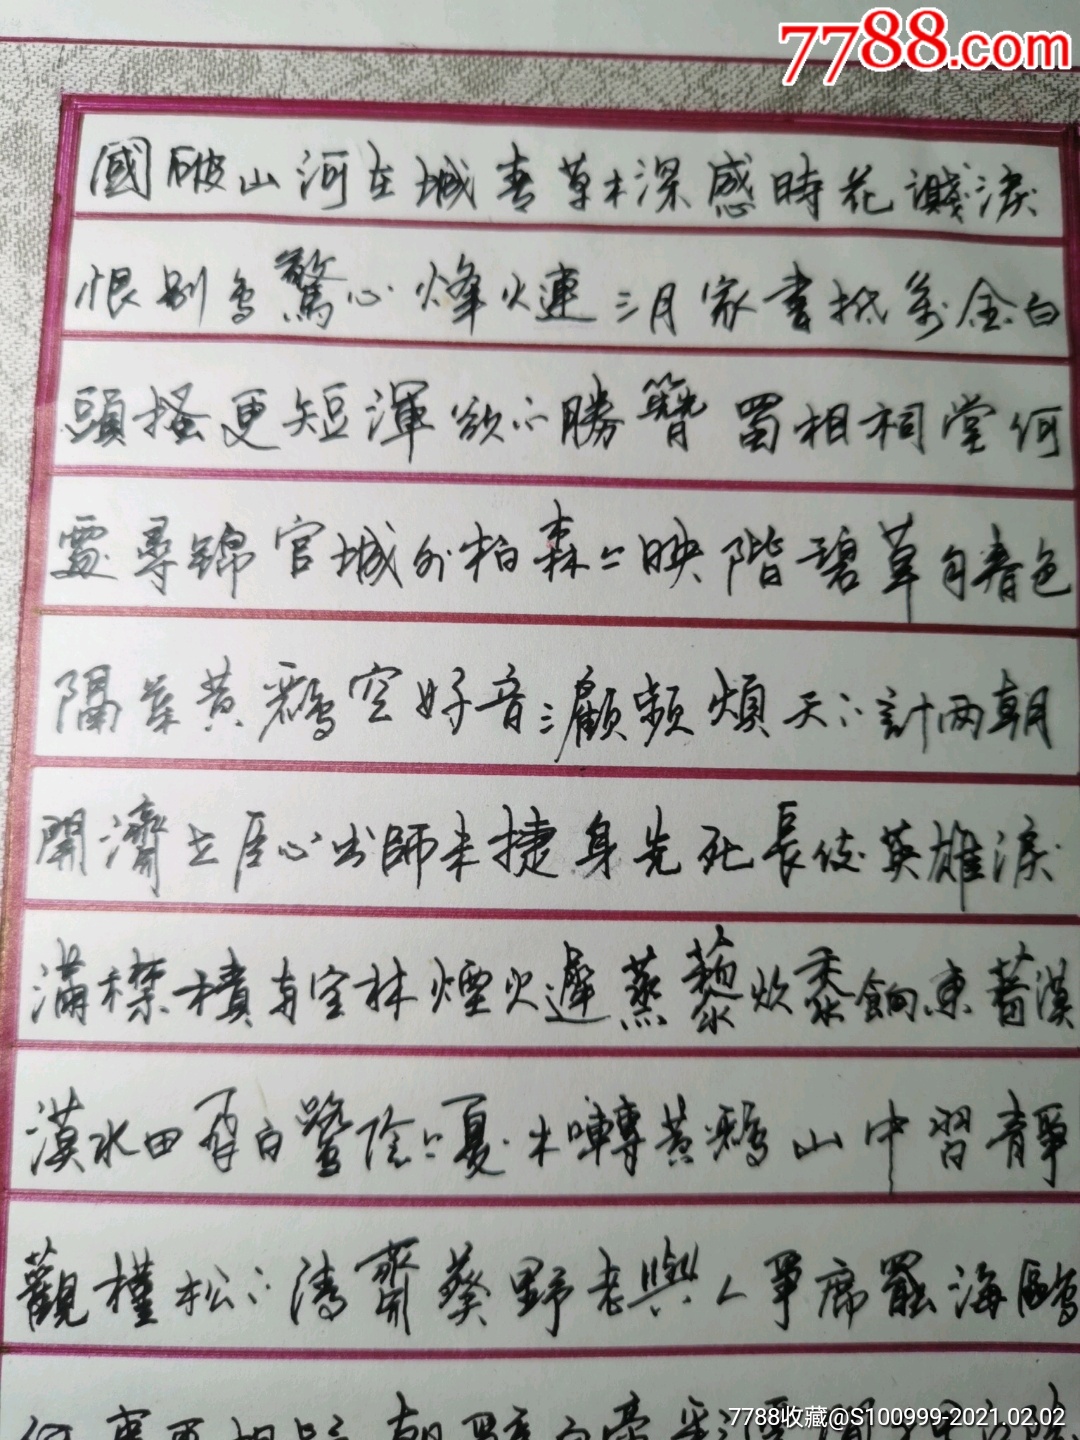 7788.com
國破山河在城春草木深感時花濺淚
恨别鳥驚心烽火連三月家書抵萬金白
頭搔更短渾欲不勝簪蜀相祠堂何
處尋錦官城外柏森〻映階碧草自春色
隔葉黄鸝空好音三顧頻煩天下計兩朝
開濟老臣心出師未捷身先死長使英雄淚
滿襟積雨空林煙火遲蒸藜炊黍餉東菑漠
漠水田飛白鷺陰〻夏木囀黄鸝山中習靜
觀槿松下清齋葵野老與人爭席罷海鷗
何事更相疑朝辭白帝彩雲間
7788收藏@S100999-2021.02.02